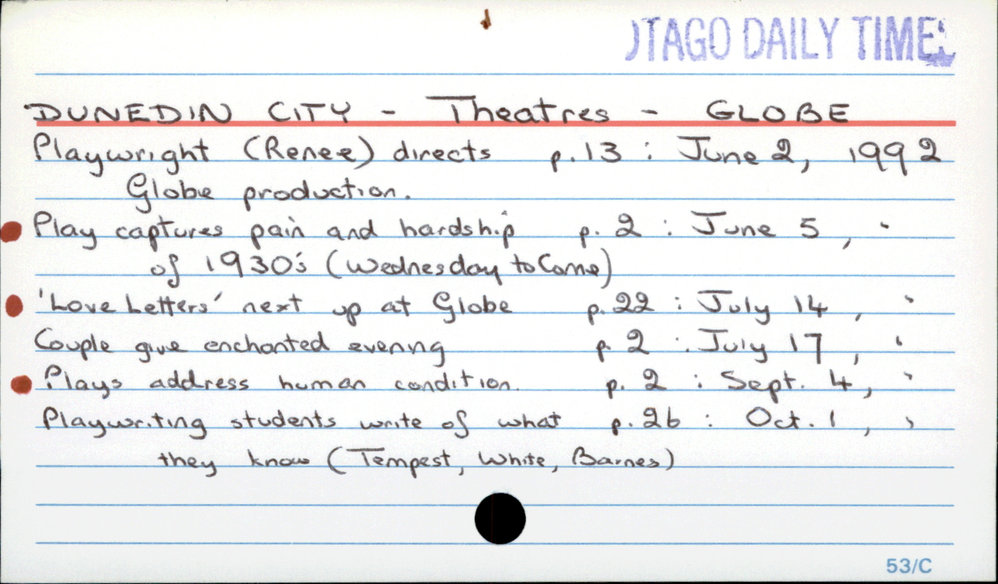 OTAGO DAILY TIMES
DUNEDIN CITY - Theatres - GLOBE
Playwright (Renee) directs p.13 : June 2, 1992
Globe production.
Play captures pain and hardship p. 2 : June 5, "
of 1930's (Wednesday to Come)
'Love Letters' next up at Globe p.22 : July 14, "
Couple give enchanted evening p 2 : July 17, "
Plays address human condition. p. 2 : Sept. 4, "
Playwriting students write of what p.26 : Oct. 1, "
they know (Tempest, White, Barnes)
53/C